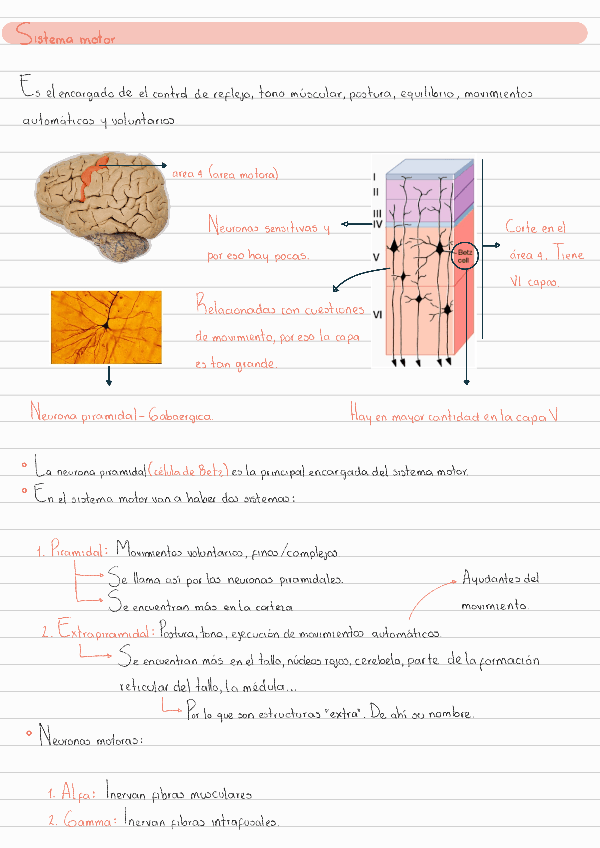 Sistema motor
Es el encargado de el control de reflejo, tono múscular, postura, equilibrio, movimientos
automáticos y voluntarios
area 4 (area motora)
Neuronas sensitivas y
por eso hay pocas.
Relacionadas con cuestiones
de movimiento, por eso la capa
es tan grande.
I
II
III
IV
V
VI
Betz
cell
Corte en el
área 4. Tiene
VI capas.
Neurona piramidal - Gabaergica.
Hay en mayor cantidad en la capa V
La neurona piramidal (célula de Betz) es la principal encargada del sistema motor.
En el sistema motor van a haber dos sistemas:
1. Piramidal: Movimientos voluntarios, finos/complejos.
Se llama así por las neuronas piramidales.
Se encuentran más en la corteza
Ayudantes del
movimiento.
2. Extrapiramidal: Postura, tono, ejecución de movimientos automáticos.
Se encuentran más en el tallo, núcleos rojos, cerebelo, parte de la formación
reticular del tallo, la médula...
Por lo que son estructuras "extra". De ahí su nombre.
Neuronas motoras:
1. Alfa: Inervan fibras musculares
2. Gamma: Inervan fibras intrafusales.